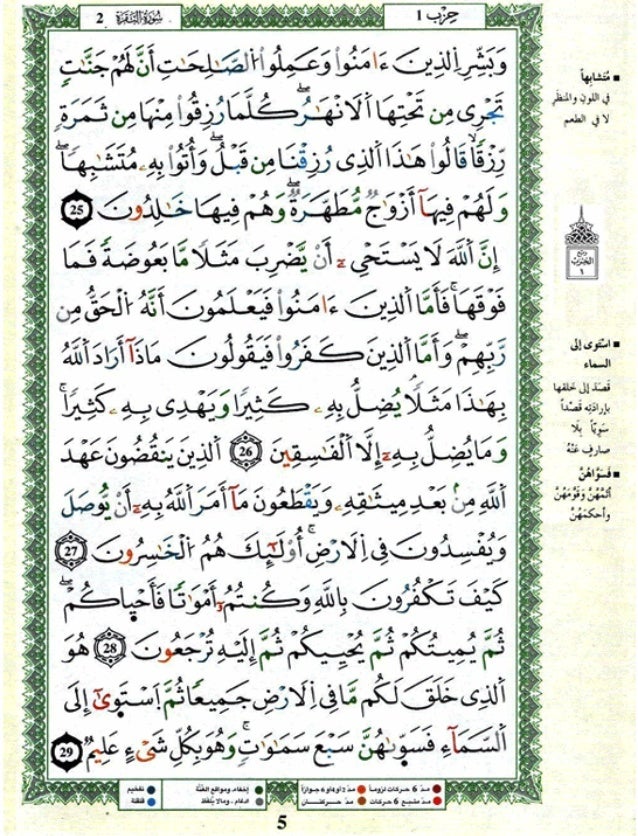 سُورَةُ البَقَرَة 2
حِزْب 1
وَبَشِّرِ اِ۬لذِينَ ءَامَنُواْ وَعَمِلُواْ اُ۬لصَّٰلِحَٰتِ أَنَّ لَهُمْ جَنَّٰتٖ
تَجْرِے مِن تَحْتِهَا اَ۬لَانْهَٰرُۖ كُلَّمَا رُزِقُواْ مِنْهَا مِن ثَمَرَةٖ
رِّزْقاٗ قَالُواْ هَٰذَا اَ۬لذِے رُزِقْنَا مِن قَبْلُۖ وَأُتُواْ بِهِۦ مُتَشَٰبِهاٗۖ
وَلَهُمْ فِيهَآ أَزْوَٰجٞ مُّطَهَّرَةٞۖ وَهُمْ فِيهَا خَٰلِدُونَ 25
إِنَّ اَ۬للَّهَ لَا يَسْتَحْيِۦٓ أَنْ يَّضْرِبَ مَثَلاٗ مَّا بَعُوضَةٗ فَمَا
فَوْقَهَاۖ فَأَمَّا اَ۬لذِينَ ءَامَنُواْ فَيَعْلَمُونَ أَنَّهُ اُ۬لْحَقُّ مِن
رَّبِّهِمْۖ وَأَمَّا اَ۬لذِينَ كَفَرُواْ فَيَقُولُونَ مَاذَآ أَرَادَ اَ۬للَّهُ
بِهَٰذَا مَثَلاٗۘ يُضِلُّ بِهِۦ كَثِيراٗ وَيَهْدِے بِهِۦ كَثِيراٗۖ
وَمَا يُضِلُّ بِهِۦٓ إِلَّا اَ۬لْفَٰسِقِينَ 26 اَ۬لذِينَ يَنقُضُونَ عَهْدَ
اَ۬للَّهِ مِنۢ بَعْدِ مِيثَٰقِهِۦ وَيَقْطَعُونَ مَآ أَمَرَ اَ۬للَّهُ بِهِۦٓ أَنْ يُّوصَلَ
وَيُفْسِدُونَ فِے اِ۬لَارْضِۖ أُوْلَٰٓئِكَ هُمُ اُ۬لْخَٰسِرُونَ 27
كَيْفَ تَكْفُرُونَ بِاللَّهِ وَكُنتُمُۥٓ أَمْوَٰتاٗ فَأَحْيَٰكُمْۖ
ثُمَّ يُمِيتُكُمْ ثُمَّ يُحْيِيكُمْ ثُمَّ إِلَيْهِ تُرْجَعُونَ 28 هُوَ
اَ۬لذِے خَلَقَ لَكُم مَّا فِے اِ۬لَارْضِ جَمِيعاٗ ثُمَّ اَ۪سْتَوَىٰٓ إِلَى
اَ۬لسَّمَآءِ فَسَوَّىٰهُنَّ سَبْعَ سَمَٰوَٰتٖۖ وَهُوَ بِكُلِّ شَےْءٍ عَلِيمٞ 29
■ مُتَشابِهاً
في اللون والمنظَرِ
لا في الطعم
ربع
الحِزْب
1
■ استَوى إلى
السماء
قَصَدَ إلى خلقها
بإرادتِه قَصْداً
سَوِيّاً بِلا
صارِف عَنْهُ
■ فَسَوَّاهُنَّ
أتَمَّهُنَّ وقَوَّمَهُنَّ
وأحكَمَهُنَّ
مدّ 6 حركات لزوماً
مدّ 2 أو4 أو6 جوازاً
إخفاء، ومواقع الغُنَّة
تفخيم
مدّ مشبع 6 حركات
مدّ حركتان
ادغام ، ومالا يُلفظ
قلقلة
5